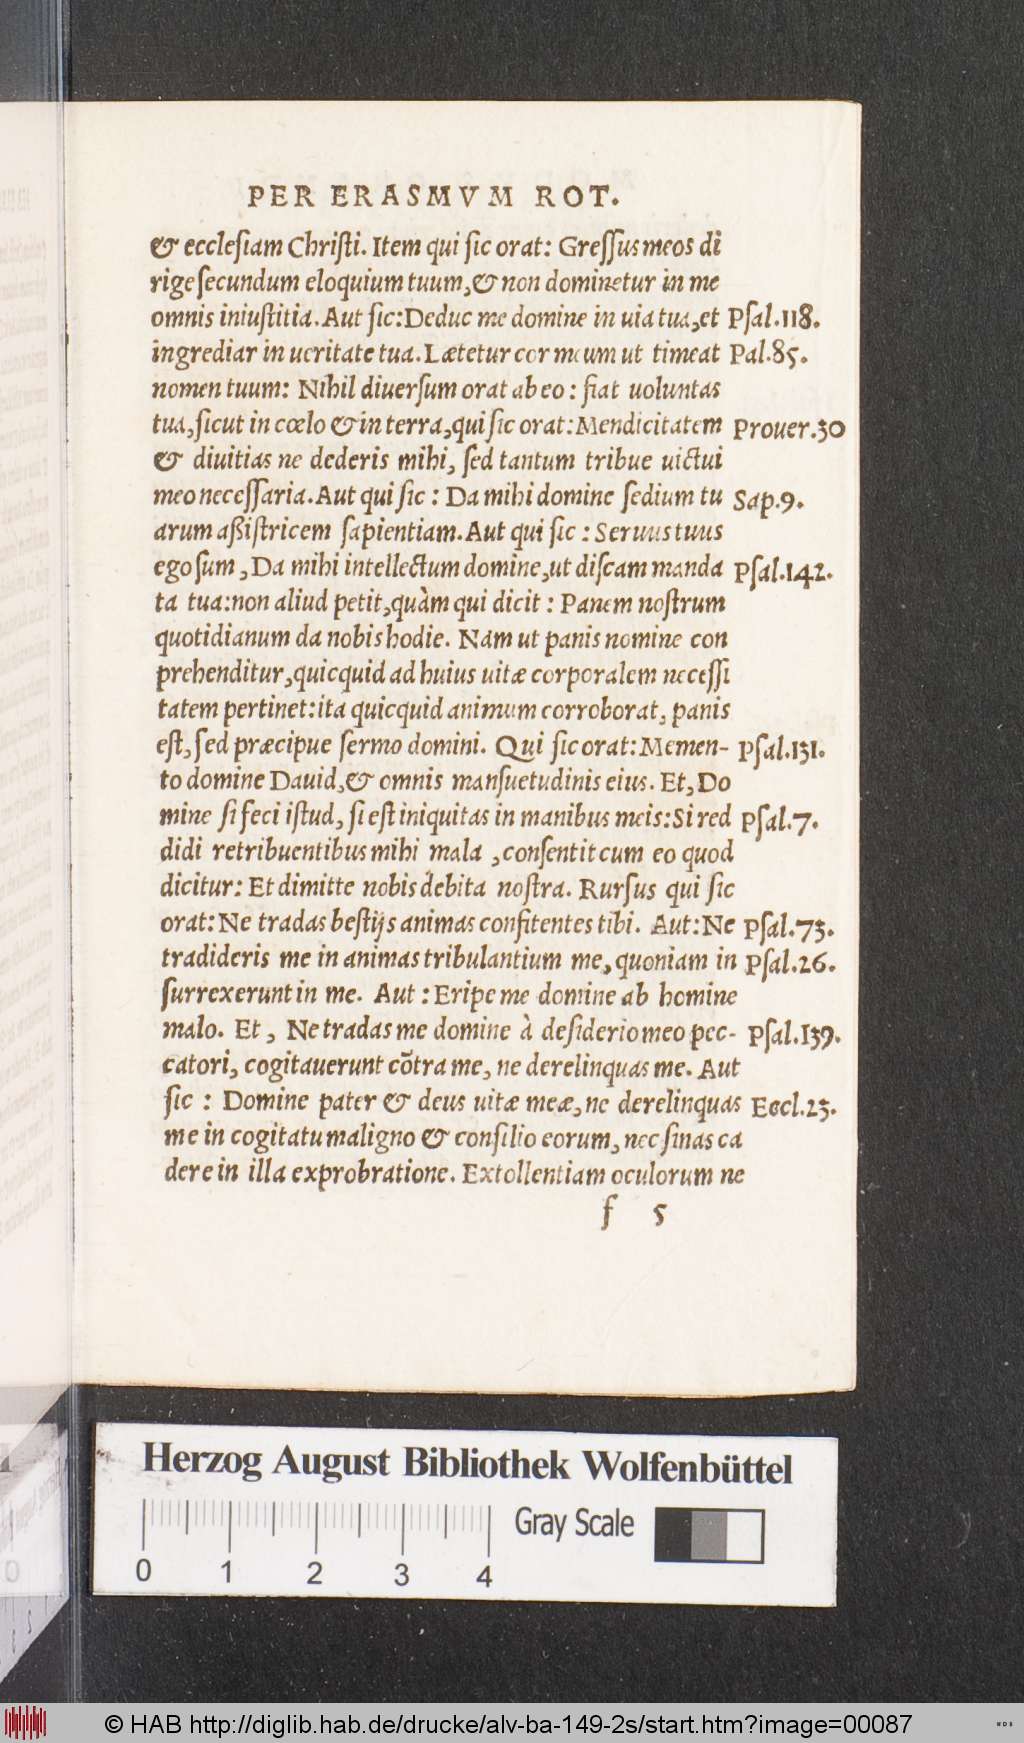 PER ERASMVM ROT.
& eccleſiam Chriſti. Item qui ſic orat: Greſſus meos di
rige ſecundum eloquium tuum, & non dominetur in me
omnis iniuſtitia. Aut ſic: Deduc me domine in uia tua, et Pſal.118.
ingrediar in ueritate tua. Lætetur cor meum ut timeat Pal.85.
nomen tuum: Nihil diuerſum orat ab eo: fiat uoluntas
tua, ſicut in cœlo & in terra, qui ſic orat: Mendicitatem Prouer.30
& diuitias ne dederis mihi, ſed tantum tribue uictui
meo neceſſaria. Aut qui ſic: Da mihi domine ſedium tu Sap.9.
arum aßiſtricem ſapientiam. Aut qui ſic: Seruus tuus
ego ſum, Da mihi intellectum domine, ut diſcam manda Pſal.142.
ta tua: non aliud petit, quàm qui dicit: Panem noſtrum
quotidianum da nobis hodie. Nam ut panis nomine con
prehenditur, quicquid ad huius uitæ corporalem neceſſi
tatem pertinet: ita quicquid animum corroborat, panis
eſt, ſed præcipue ſermo domini. Qui ſic orat: Memen- Pſal.131.
to domine Dauid, & omnis manſuetudinis eius. Et, Do
mine ſi feci iſtud, ſi eſt iniquitas in manibus meis: Si red Pſal.7.
didi retribuentibus mihi mala, conſentit cum eo quod
dicitur: Et dimitte nobis debita noſtra. Rurſus qui ſic
orat: Ne tradas beſtijs animas confitentes tibi. Aut: Ne Pſal.73.
tradideris me in animas tribulantium me, quoniam in Pſal.26.
ſurrexerunt in me. Aut: Eripe me domine ab homine
malo. Et, Ne tradas me domine à deſiderio meo pec- Pſal.139.
catori, cogitauerunt cõtra me, ne derelinquas me. Aut
ſic: Domine pater & deus uitæ meæ, ne derelinquas Eccl.23.
me in cogitatu maligno & conſilio eorum, nec ſinas ca
dere in illa exprobratione. Extollentiam oculorum ne
f 5
Herzog August Bibliothek Wolfenbüttel
Gray Scale
0 1 2 3 4
© HAB http://diglib.hab.de/drucke/alv-ba-149-2s/start.htm?image=00087